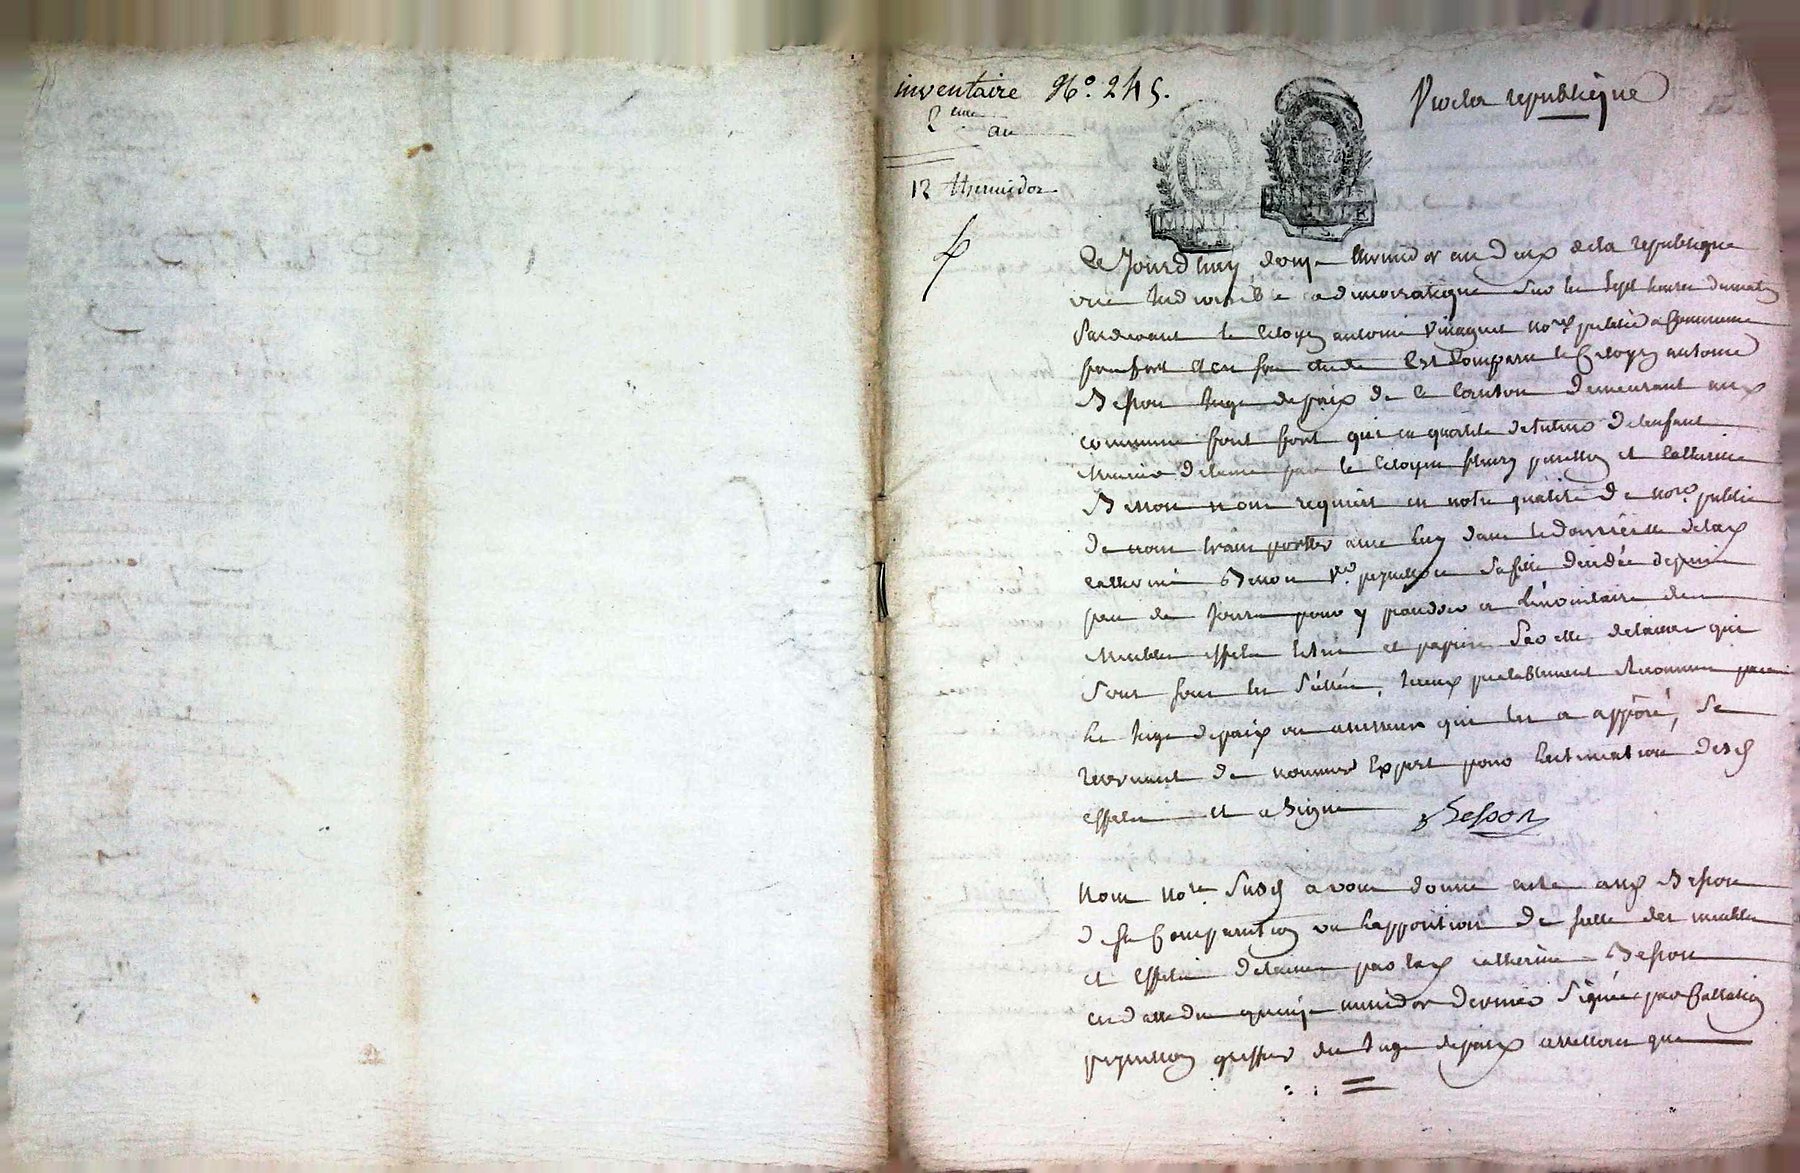 inventaire N°. 245.
2 eme an
12 thermidor
Vive la republique
MINUTE
Ce Jourdhuy douze thermidor an deux de la republique
une Indivisible et democratique sur les sept heures du matin
Pardevant le Citoyen antoine nore public a commune
est Comparu le Citoyen antoine
Besson Juge de paix de ce Canton demeurant aux
commune qui en qualité de tuteur de lenfant
mineur delaissé par le Citoyen fleury et Catherine
Besson nous requiert en notre qualité de nore public
de nous transporter avec luy dans le domicille de la
Catherine Besson Ve sa fille décédée depuis
peu de Jours pour y proceder a linventaire des
meubles effets titres et papiers par elle delaissés qui
sont sous les sellés, Iceux prealablement reconnus par
le Juge de paix ou assesseur qui les a apposé, se
reservant de nommer Expert pour lestimation desd
effets et a Signé Besson
Nous nore susd avons donné acte aud Besson
de sa Comparution vu lapposition de sellé des meubles
et Effets delaissés par lad catherine Besson
en datte du quinze messidor dernier Signée par
greffier du Juge de paix assesseur que